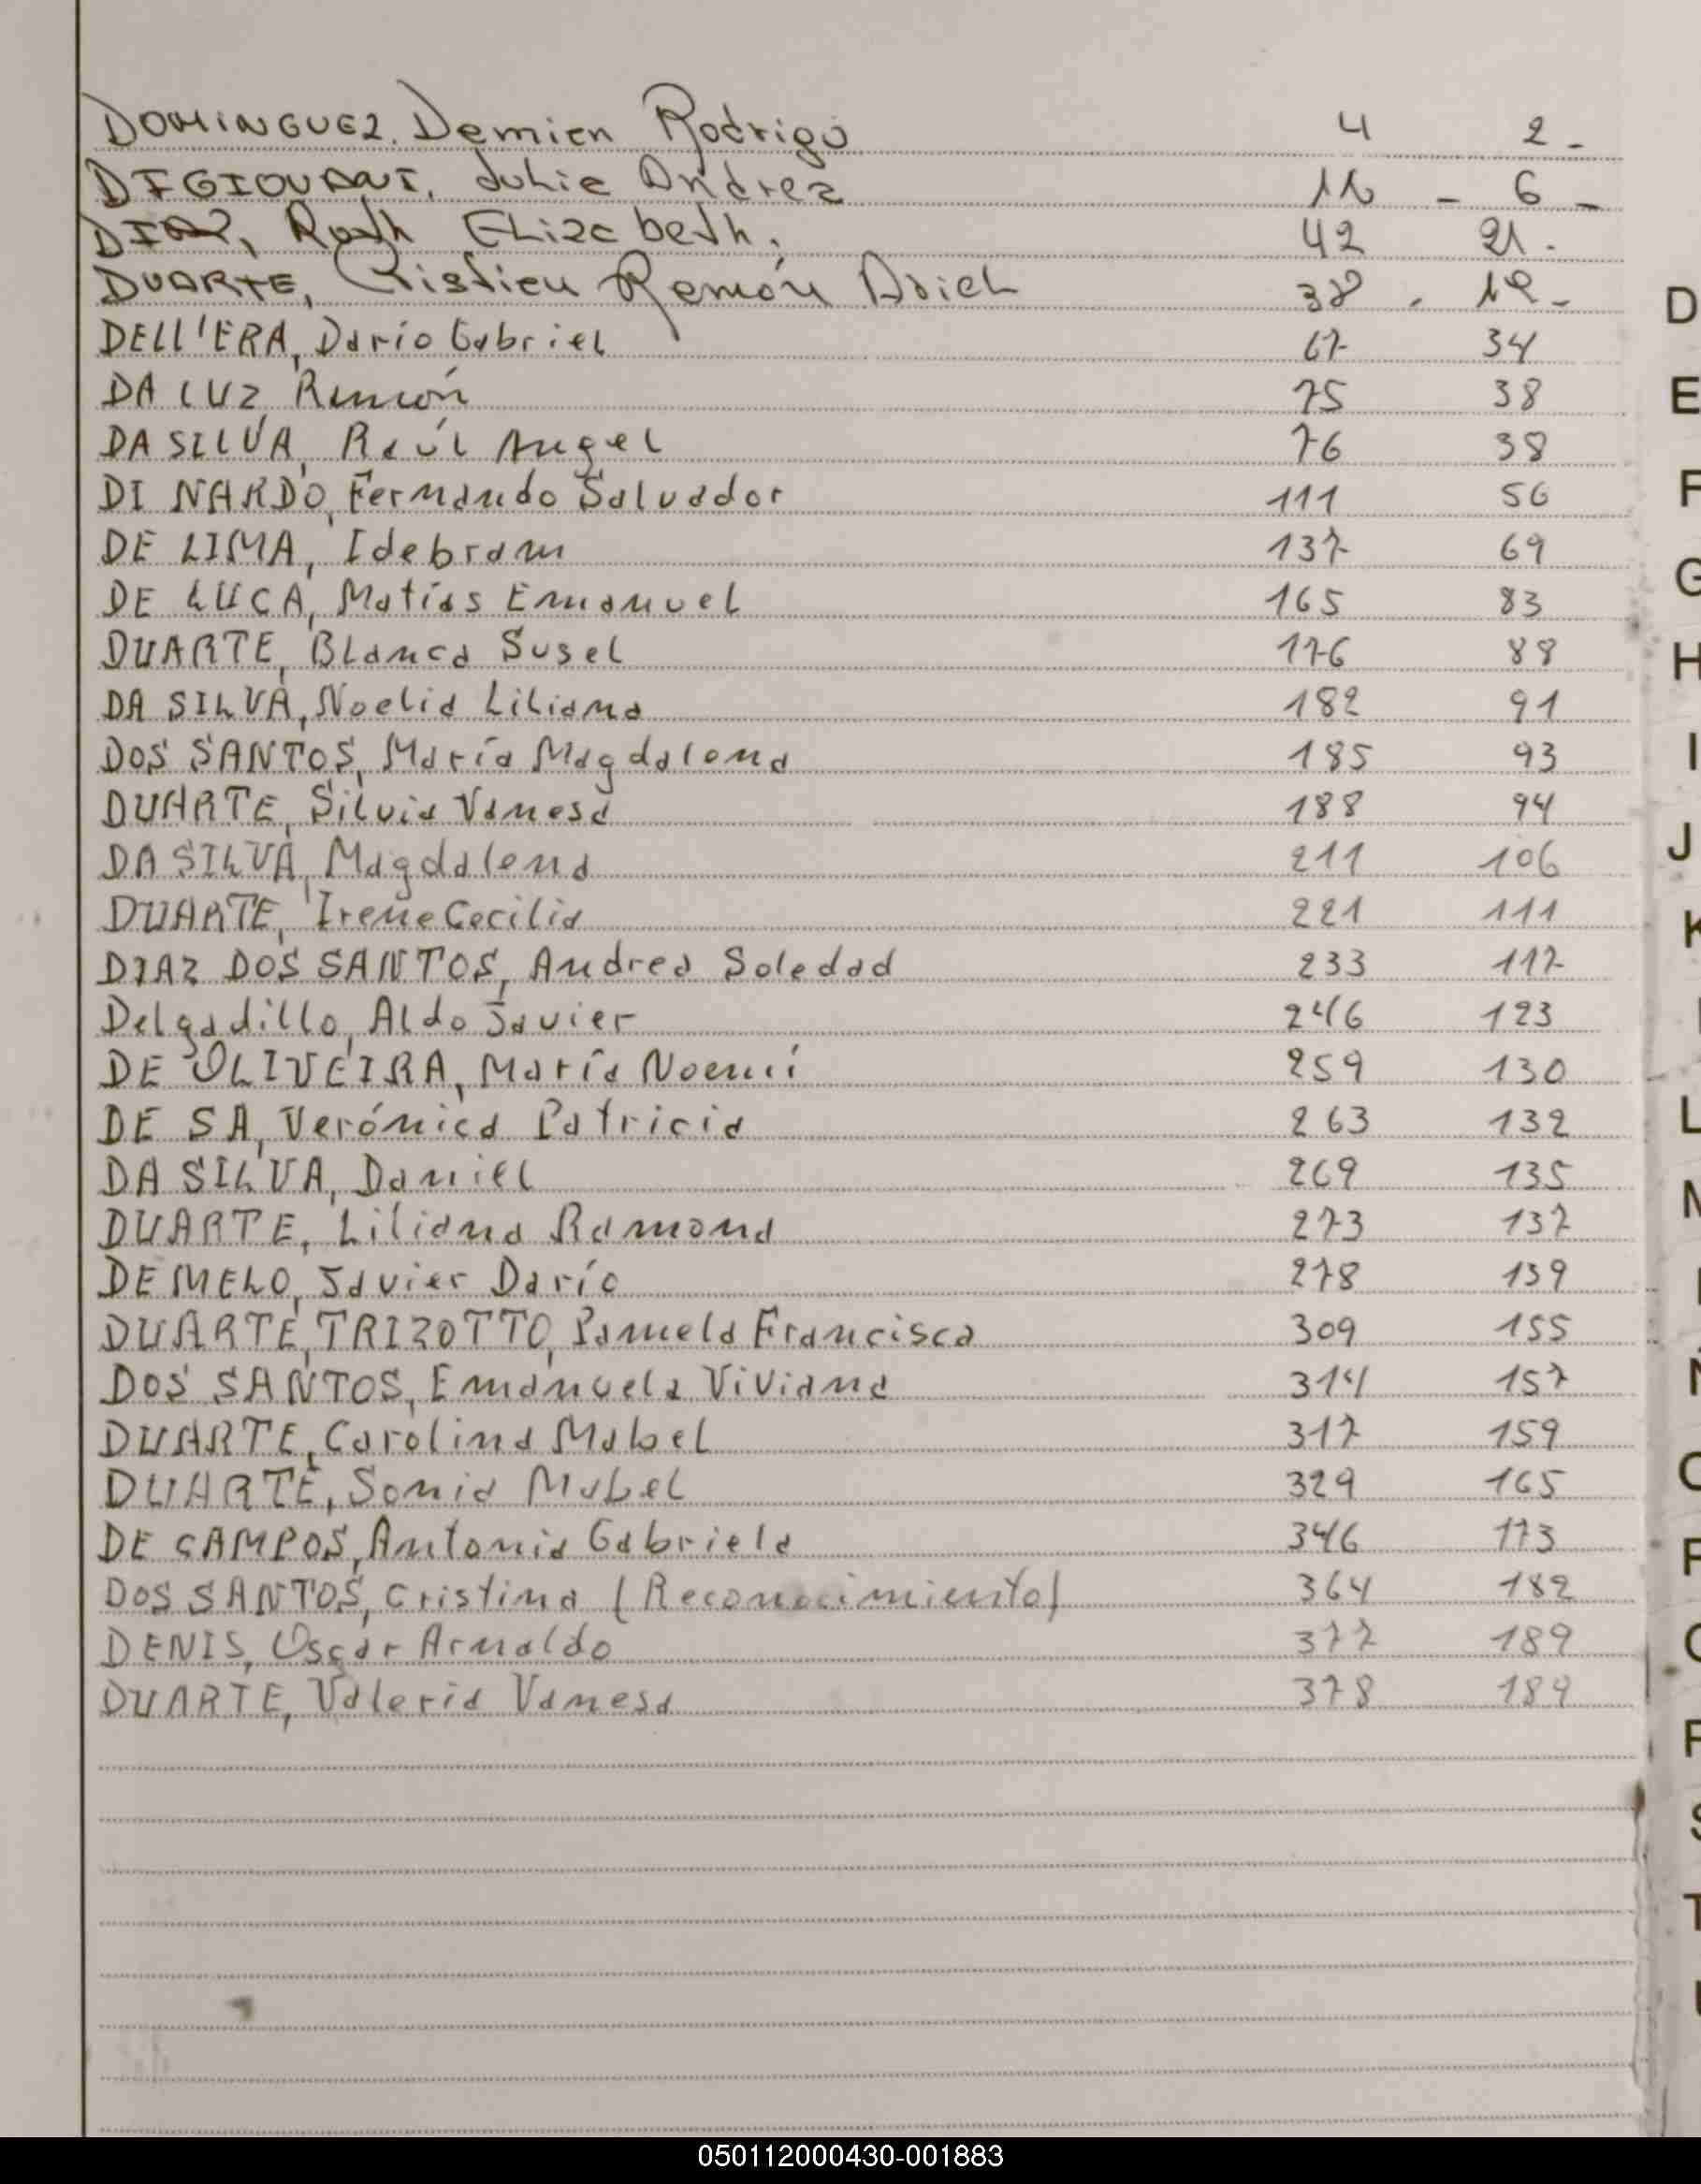 DOMINGUEZ, Demian Rodrigo 4 2 -
DIGIOVANI, Julia Andrea 11 - 6 -
DIAZ, Ruth Elizabeth. 42 21 -
DUARTE, Cristian Ramón Ariel 38 - 19 -
DELL'ERA, Darío Gabriel 67 34
DA LUZ, Ramón 75 38
DA SILVA, Raúl Angel 76 38
DI NARDO, Fernando Salvador 111 56
DE LIMA, Idebram 137 69
DE LUCA, Matías Emanuel 165 83
DUARTE, Blanca Susel 176 88
DA SILVA, Noelia Liliana 182 91
DOS SANTOS, María Magdalena 185 93
DUARTE, Silvia Vanesa 188 94
DA SILVA, Magdalena 211 106
DUARTE, Irene Cecilia 221 111
DIAZ DOS SANTOS, Andrea Soledad 233 117
Delgadillo, Aldo Javier 246 123
DE OLIVEIRA, María Noemí 259 130
DE SA, Verónica Patricia 263 132
DA SILVA, Daniel 269 135
DUARTE, Liliana Ramona 273 137
DE MELO, Javier Darío 278 139
DUARTE TRIZOTTO, Pamela Francisca 309 155
DOS SANTOS, Emanuela Viviana 314 157
DUARTE, Carolina Mabel 317 159
DUARTE, Sonia Mabel 329 165
DE CAMPOS, Antonia Gabriela 346 173
DOS SANTOS, Cristina (Reconocimiento) 364 182
DENIS, Oscar Arnaldo 377 189
DUARTE, Valeria Vanesa 378 189
D
E
F
G
H
I
J
K
L
M
Ñ
O
P
Q
R
S
T
U
050112000430-001883